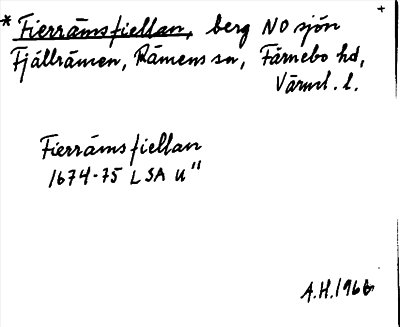 +
* Fierrämsfiellan, berg NO sjön
Fjällrämen, Rämens sn, Färnebo hd,
Värml. l.
Fierrämsfiellan
1674-75 LSA U"
A.H. 1966